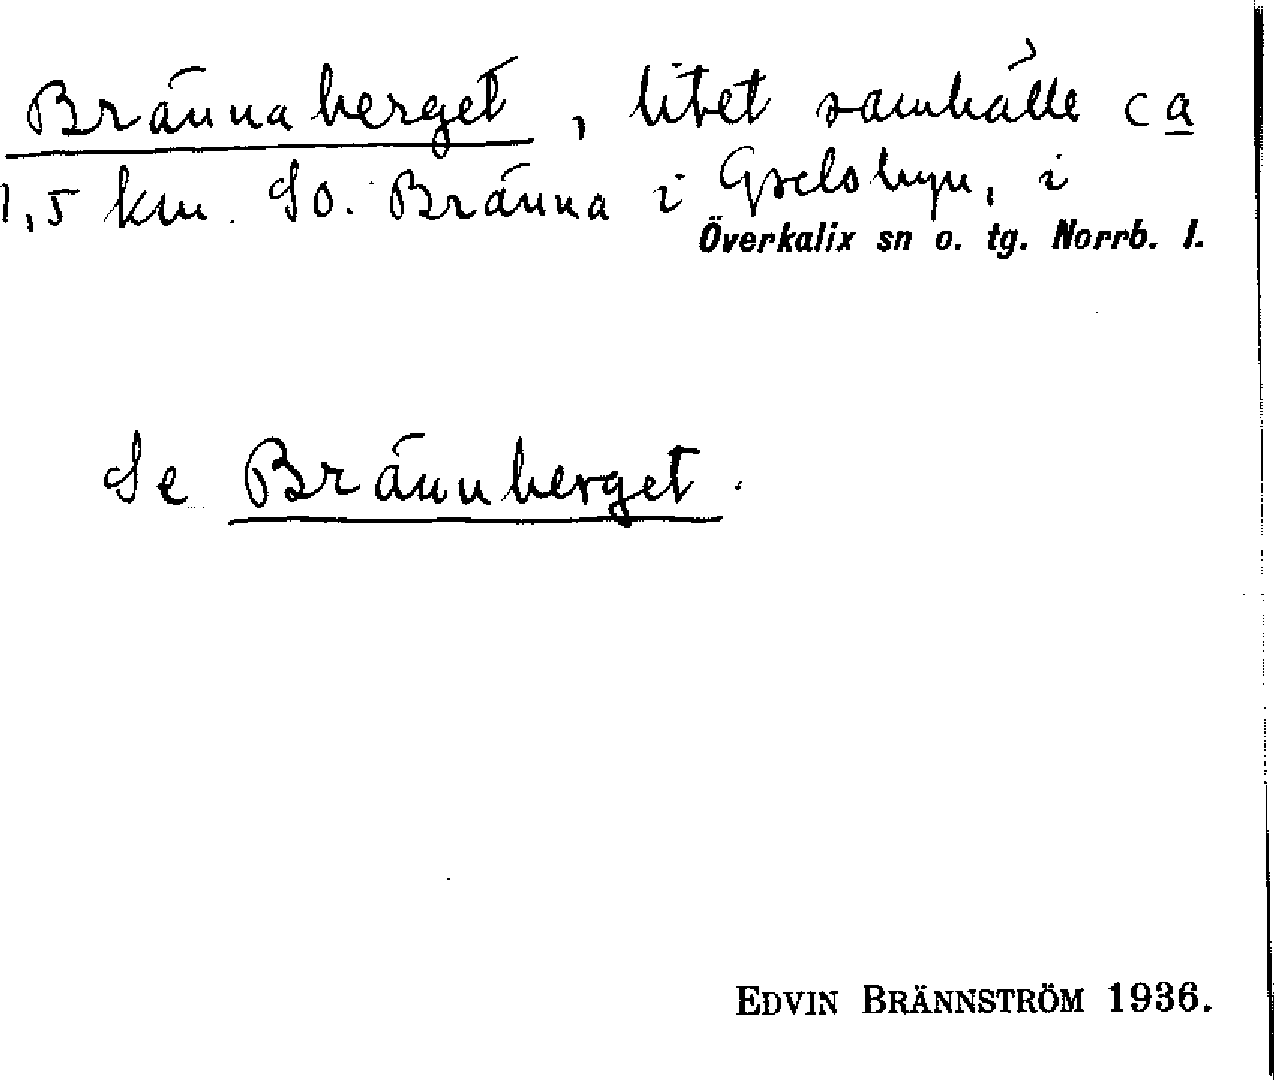 Brännaberget, litet samhälle ca
1,5 km. SO. Bränna i Gyelsbyn, i
Överkalix sn o. tg. Norrb. l.
Se Brännberget.
EDVIN BRÄNNSTRÖM 1936.